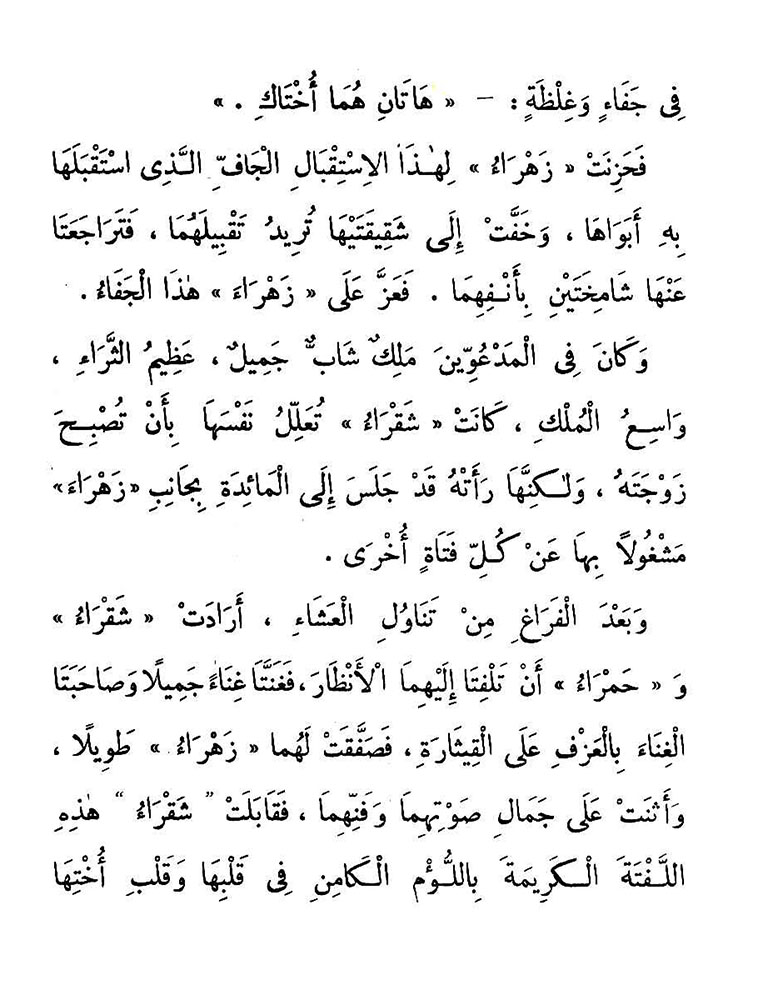 فِى جَفَاءٍ وَغِلْظَةٍ : – « هَاتَانِ هُمَا أُخْتَاكِ . »
فَحَزِنَتْ « زَهْرَاءُ » لِهٰذَا الاِسْتِقْبَالِ الْجَافِّ الَّذِى اسْتَقْبَلَهَا
بِهِ أَبَوَاهَا ، وَخَفَّتْ إِلَى شَقِيقَتَيْهَا تُرِيدُ تَقْبِيلَهُمَا ، فَتَرَاجَعَتَا
عَنْهَا شَامِخَتَيْنِ بِأَنْفِهِمَا . فَعَزَّ عَلَى « زَهْرَاءَ » هٰذَا الْجَفَاءُ .
وَكَانَ فِى الْمَدْعُوِّينَ مَلِكٌ شَابٌّ جَمِيلٌ ، عَظِيمُ الثَّرَاءِ ،
وَاسِعُ الْمُلْكِ ، كَانَتْ « شَقْرَاءُ » تُعَلِّلُ نَفْسَهَا بِأَنْ تُصْبِحَ
زَوْجَتَهُ ، وَلٰكِنَّهَا رَأَتْهُ قَدْ جَلَسَ إِلَى الْمَائِدَةِ بِجَانِبِ «زَهْرَاءَ»
مَشْغُولاً بِهَا عَنْ كُلِّ فَتَاةٍ أُخْرَى .
وَبَعْدَ الْفَرَاغِ مِنْ تَنَاوُلِ الْعَشَاءِ ، أَرَادَتْ « شَقْرَاءُ »
وَ « حَمْرَاءُ » أَنْ تَلْفِتَا إِلَيْهِمَا الْأَنْظَارَ، فَغَنَّتَا غِنَاءً جَمِيلًا وَصَاحَبَتَا
الْغِنَاءَ بِالْعَزْفِ عَلَى الْقِيثَارَةِ ، فَصَفَّقَتْ لَهُما « زَهْرَاءُ » طَوِيلًا ،
وَأَثْنَتْ عَلَى جَمَالِ صَوْتِهِمَا وَفَنِّهِمَا ، فَقَابَلَتْ ” شَقْرَاءُ “ هٰذِهِ
اللَّفْتَةَ الْكَرِيمَةَ بِاللُّؤْمِ الْكَامِنِ فِى قَلْبِهَا وَقَلْبِ أُخْتِهَا